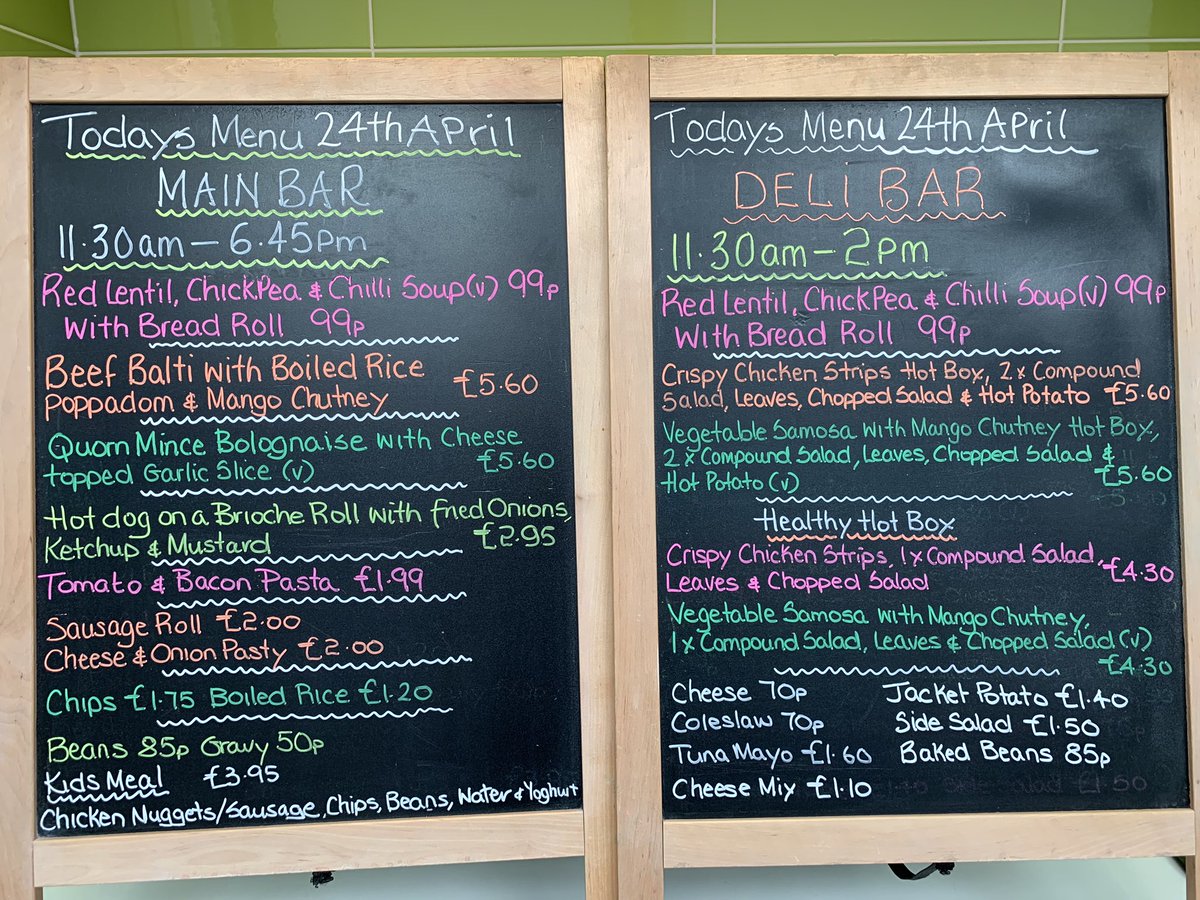 Todays Menu 24th April
MAIN BAR
11.30am - 6.45pm
Red Lentil, ChickPea & Chilli Soup(v) 99p
With Bread Roll 99p
Beef Balti with Boiled Rice
Poppadom & Mango Chutney £5.60
Quorn Mince Bolognaise with Cheese
topped Garlic Slice (v) £5.60
Hot dog on a Brioche Roll with fried Onions,
Ketchup & Mustard £2.95
Tomato & Bacon Pasta £1.99
Sausage Roll £2.00
Cheese & Onion Pasty £2.00
Chips £1.75 Boiled Rice £1.20
Beans 85p Gravy 50p
Kids Meal £3.95
Chicken Nuggets/Sausage, Chips, Beans, Water & Yoghurt
Todays Menu 24th April
DELI BAR
11.30am - 2pm
Red Lentil, ChickPea & Chilli Soup(v) 99p
With Bread Roll 99p
Crispy Chicken Strips Hot Box, 2x Compound
Salad, Leaves, Chopped Salad & Hot Potato £5.60
Vegetable Samosa with Mango Chutney Hot Box,
2x Compound Salad, Leaves, Chopped Salad &
Hot Potato (v) £5.60
Healthy Hot Box
Crispy Chicken Strips, 1x Compound Salad,
Leaves & Chopped Salad £4.30
Vegetable Samosa with Mango Chutney,
1x Compound Salad, Leaves & Chopped Salad (v)
£4.30
Cheese 70p Jacket Potato £1.40
Coleslaw 70p Side Salad £1.50
Tuna Mayo £1.60 Baked Beans 85p
Cheese Mix £1.10